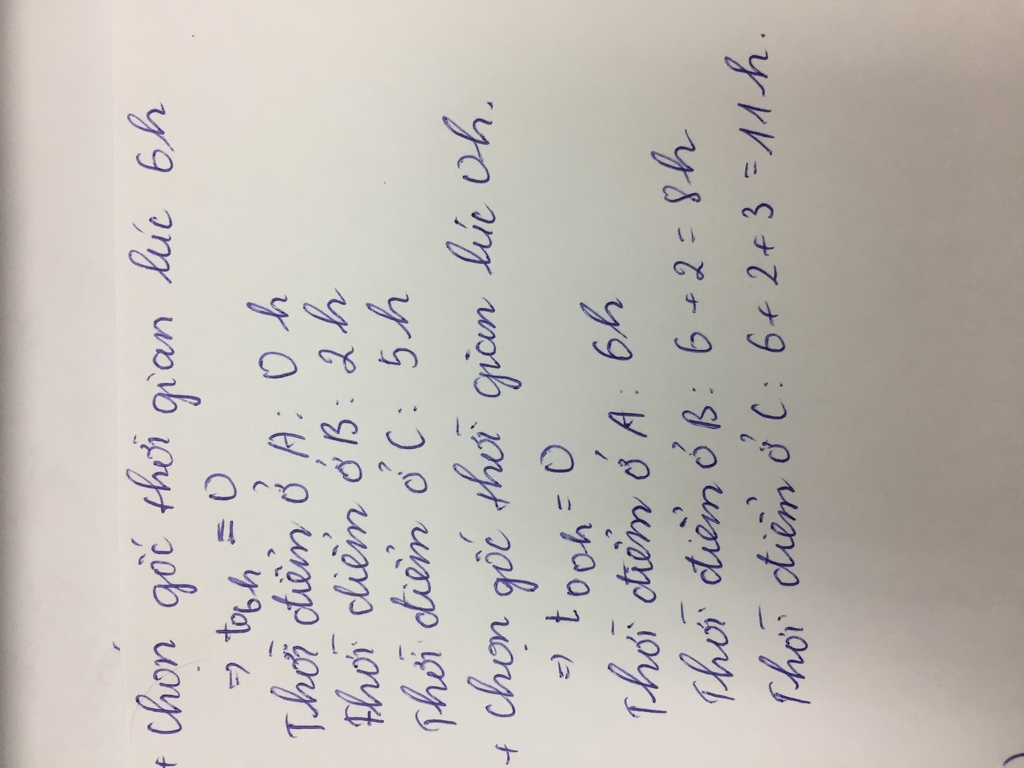 + Chọn gốc thời gian lúc 6h
=> t06h = 0
Thời điểm ở A: 0 h
Thời điểm ở B: 2h
Thời điểm ở C: 5h
+ Chọn gốc thời gian lúc 0h.
=> t00h = 0
Thời điểm ở A: 6h
Thời điểm ở B: 6 + 2 = 8h
Thời điểm ở C: 6 + 2 + 3 = 11h.